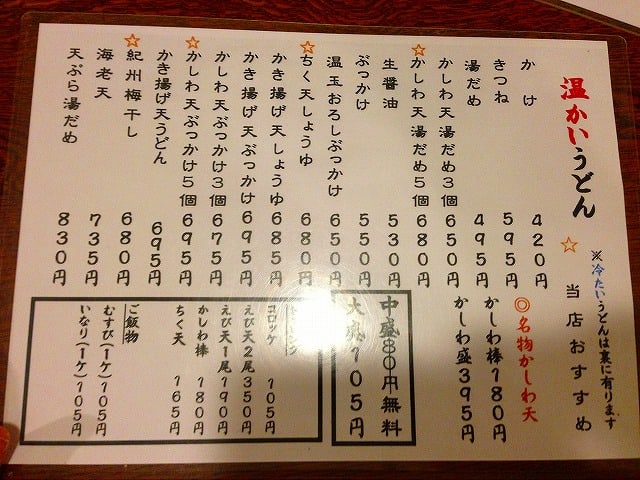 温かいうどん
※冷たいうどんは裏に有ります
☆当店おすすめ
かけ 420円
きつね 595円
湯だめ 495円
かしわ天湯だめ3個 650円
☆かしわ天湯だめ5個 680円
生醤油 530円
ぶっかけ 550円
温玉おろしぶっかけ 650円
☆ちく天しょうゆ 680円
かき揚げ天しょうゆ 685円
かき揚げ天ぶっかけ 695円
かしわ天ぶっかけ3個 675円
☆かしわ天ぶっかけ5個 695円
かき揚げ天うどん 695円
☆紀州梅干し 680円
海老天 735円
天ぷら湯だめ 830円
◎名物かしわ天
かしわ棒180円
かしわ盛395円
中盛80円無料
大盛105円
コロッケ 105円
えび天2尾350円
えび天1尾190円
かしわ棒 180円
ちく天 165円
ご飯物
むすび(1ケ)105円
いなり(1ケ)105円